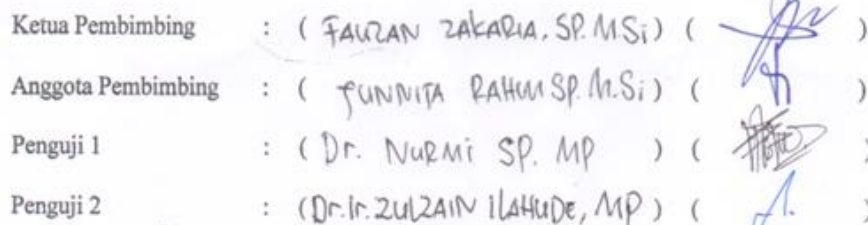 Ketua Pembimbing : ( FAUZAN ZAKARIA, SP. M.Si ) ( )
Anggota Pembimbing : ( YUNNITA RAHIM SP. M.Si ) ( )
Penguji 1 : ( Dr. NURMI SP. MP ) ( )
Penguji 2 : ( Dr. Ir. ZULZAIN ILAHUDE, MP ) ( )